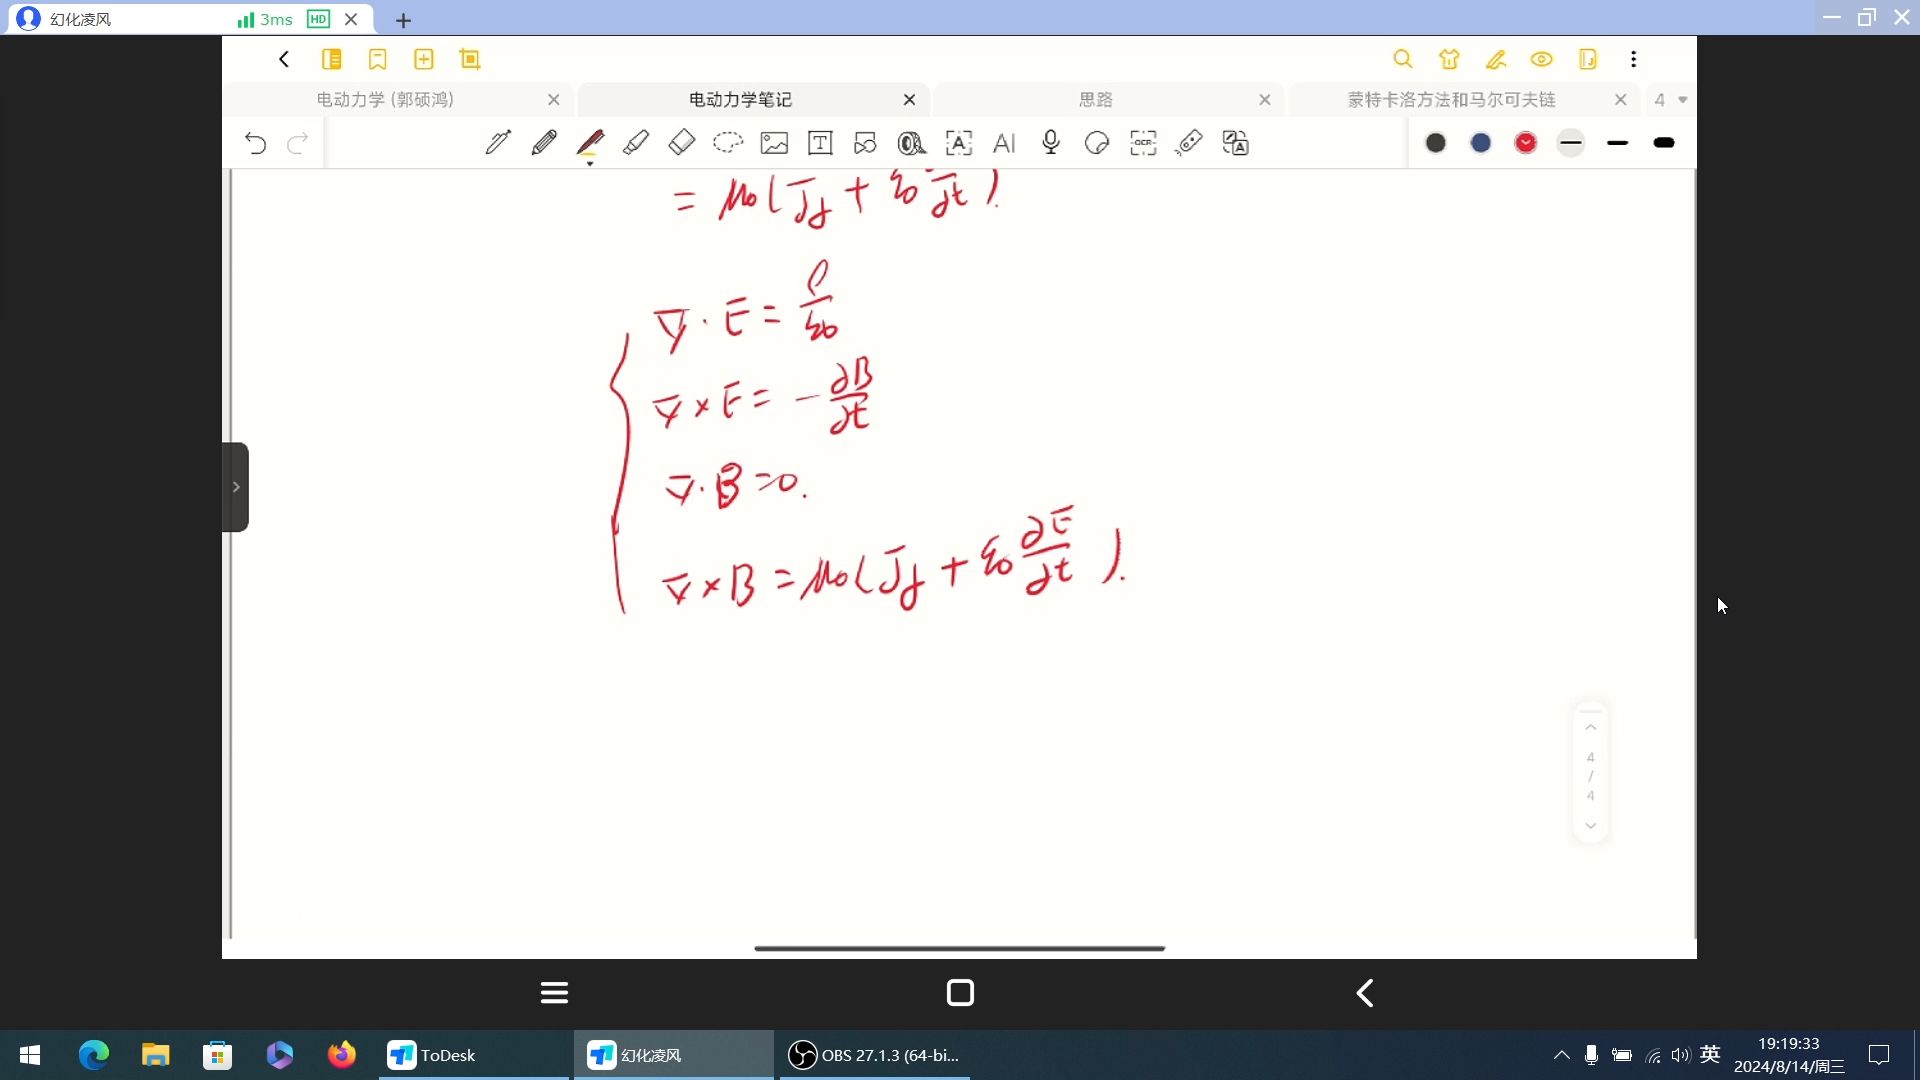 幻化凌风 3ms HD
电动力学 (郭硕鸿) 电动力学笔记 思路 蒙特卡洛方法和马尔可夫链 4
= μ₀(J_f + ε₀ ─/∂t).
∇·E = ρ/ε₀
∇×E = -∂B/∂t
∇·B = 0.
∇×B = μ₀(J_f + ε₀ ∂E/∂t).
4
/
4
ToDesk 幻化凌风 OBS 27.1.3 (64-bi... 英 19:19:33
2024/8/14/周三